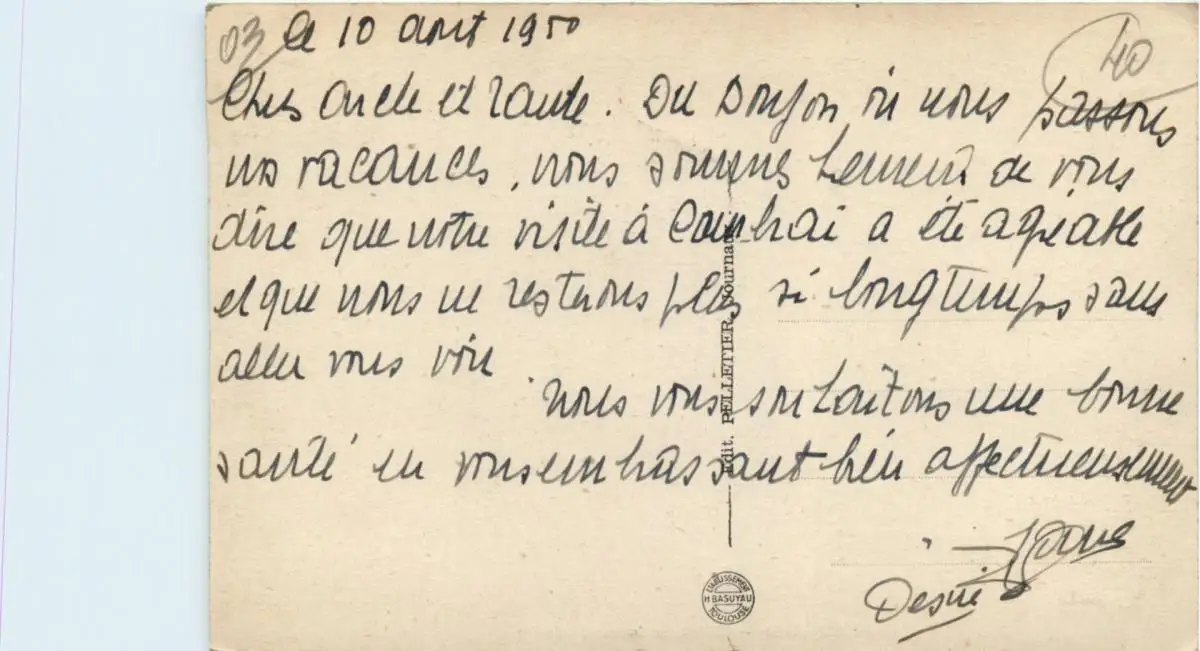 03 le 10 août 1950
40
Chers oncle et tante. Du Donjon où nous passons
nos vacances, nous sommes heureux de vous
dire que notre visite à Cambrai a été agréable
et que nous ne resterons plus si longtemps sans
aller vous voir
Nous vous souhaitons une bonne
santé en vous embrassant bien affectueusement
Désiré
Edit. PELLETIER, Journaux
ETABLISSEMENT
H BASUYAU
TOULOUSE